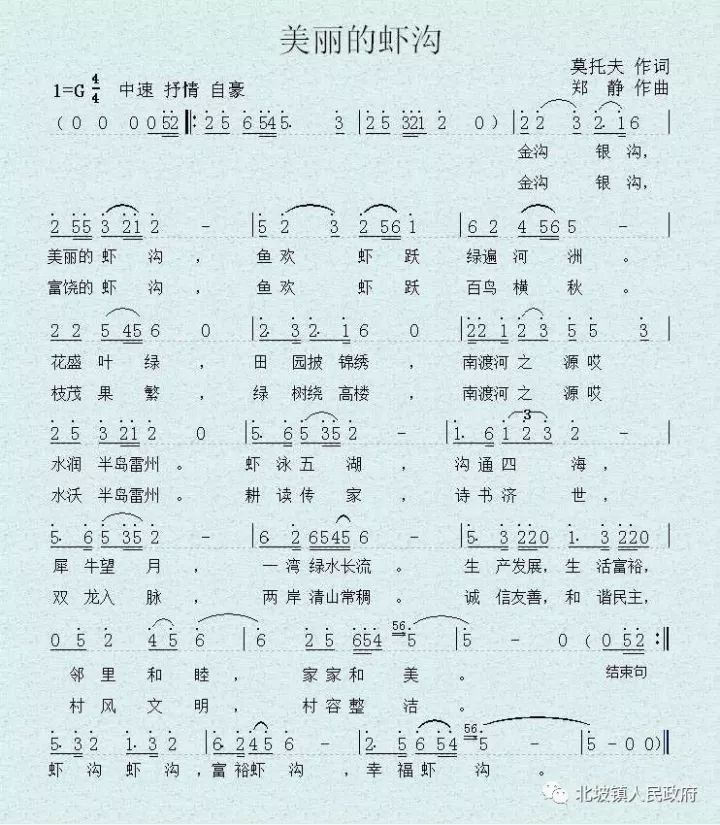 美丽的虾沟
莫托夫 作词
1=G 4/4 中速 抒情 自豪
郑 静 作曲
(0 0 0 0 52 ‖: 2 5 6 5 4 5. 3 | 2 5 3 2 1 2 0) | 2 2 3 2. 1 6 |
金沟 银沟,
金沟 银沟,
2 5 5 3 2 1 2 - | 5 2 3 2 5 6 1 | 6 2 4 5 6 5 - |
美丽的虾 沟 , 鱼欢 虾跃 绿遍河 洲 。
富饶的虾 沟 , 鱼欢 虾跃 百鸟横 秋 。
2 2 5 4 5 6 0 | 2. 3 2. 1 6 0 | 2 2 2 1 2 3 5 5 3 |
花盛 叶 绿 , 田 园披 锦绣 , 南渡河之 源哎
枝茂 果 繁 , 绿 树绕 高楼 , 南渡河之 源哎
2 5 3 2 1 2 0 | 5. 6 5 3 5 2 - | 1. 6 1 2 3 3 - |
水润 半岛雷州 。 虾 泳五 湖 , 沟通四 海 ,
水沃 半岛雷州 。 耕 读传 家 , 诗书济 世 ,
5. 6 5 3 5 2 - | 6. 2 6 5 4 5 6 - | 5. 3 2 2 0 1. 3 2 2 0 |
犀 牛望 月 , 一 湾绿水长流 。 生 产发展,生 活富裕,
双 龙入 脉 , 两 岸清山常稠 。 诚 信友善,和 谐民主,
0 5 2 4 5 6 | 6 2 5 6 5 4 56 5 | 5 - 0 (0 5 2 :‖
邻 里 和 睦 , 家 家和 美 。 结束句
村 风 文 明 , 村 容整 洁 。
5. 3 2 1. 3 2 | 6. 2 4 5 6 - | 2. 5 6 5 4 56 5 - | 5 - 0 0) ‖
虾 沟 虾 沟 , 富 裕虾 沟 , 幸 福虾 沟 。
北坡镇人民政府